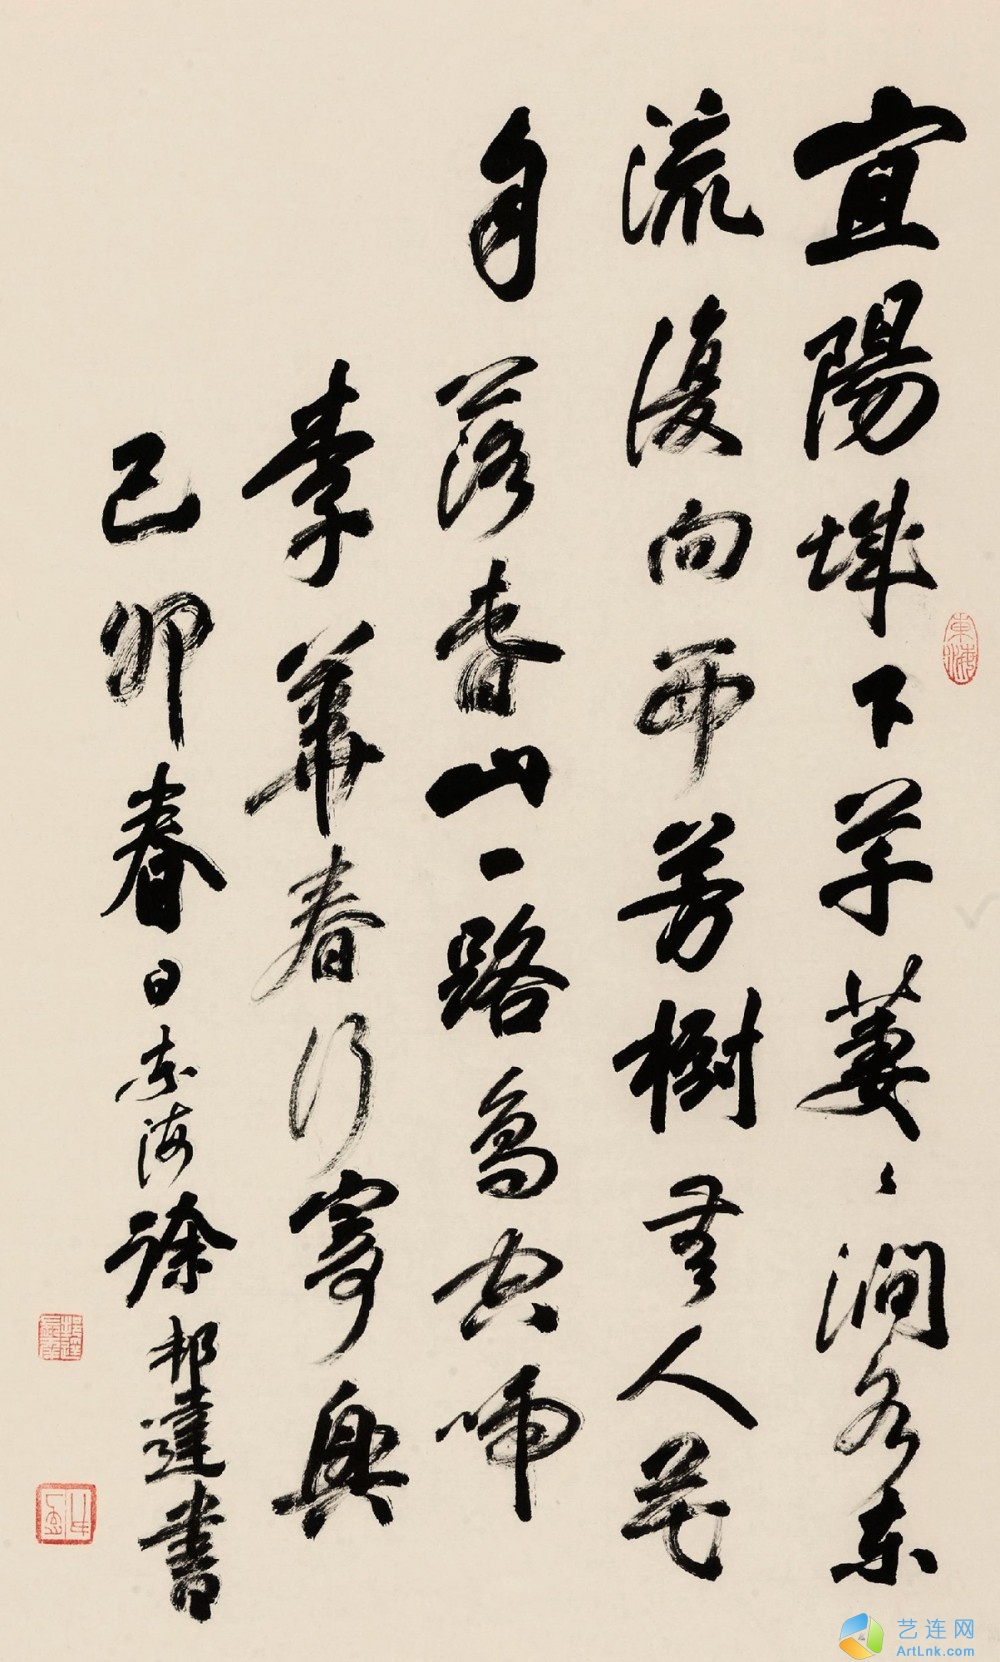 宜陽城下草萋〻澗水東
流復向西芳樹無人花
自落春山一路鳥空啼
李華春行寄興
己卯春日東海徐邦達書
東海
艺连网
ArtLnk.com